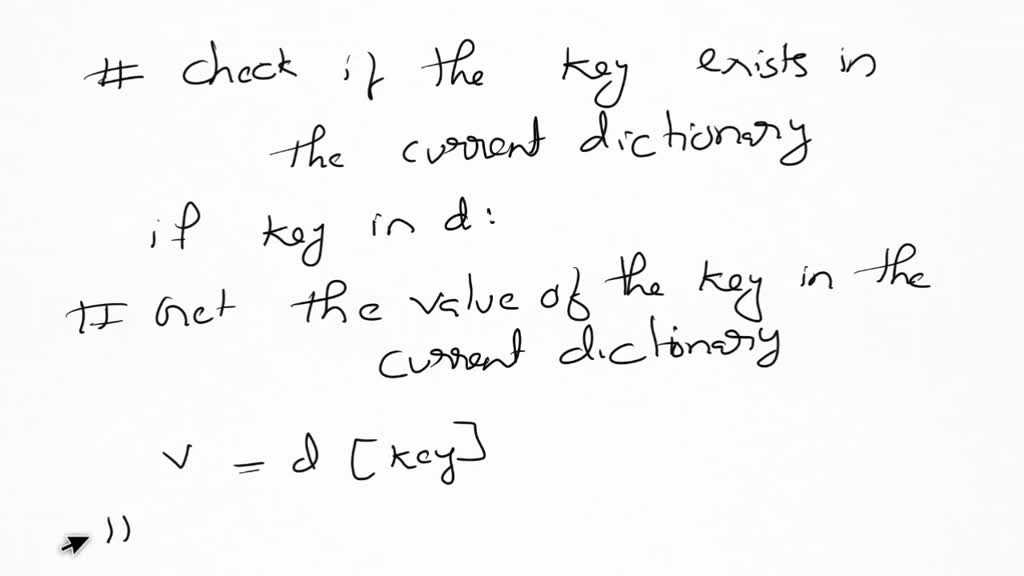 # check if the key exists in
the current dictionary
if key in d:
# Get the value of the key in the
current dictionary
v = d [key]